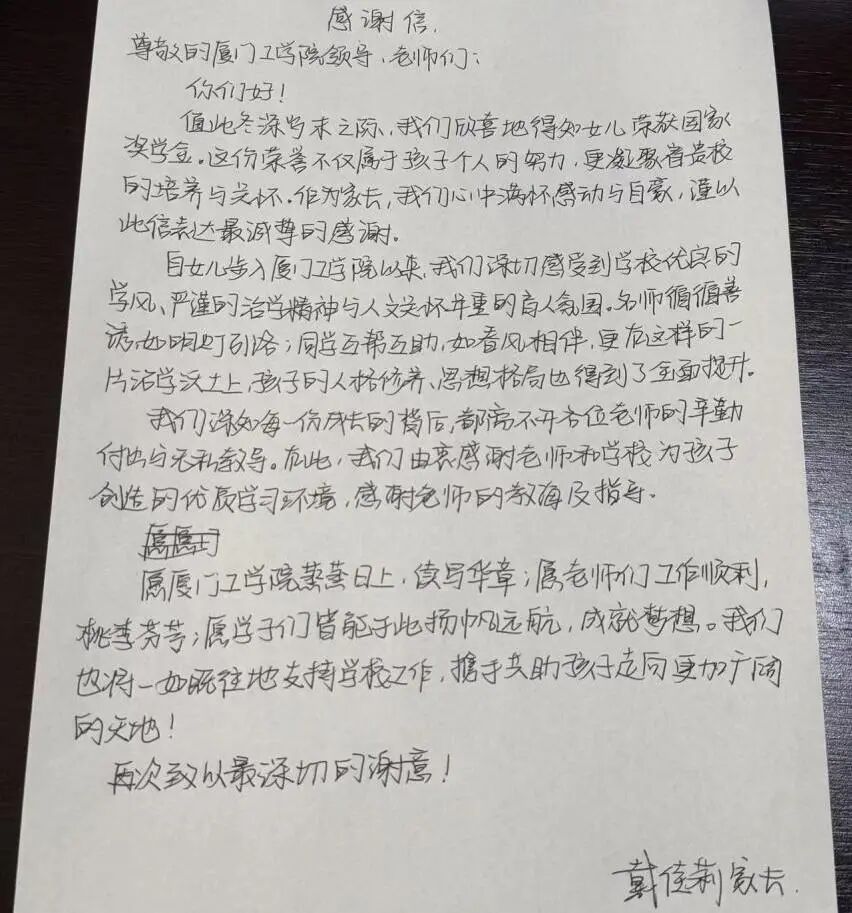 感谢信.
尊敬的厦门工学院领导、老师们：
你们好！
值此冬深岁末之际、我们欣喜地得知女儿荣获国家
奖学金。这份荣誉不仅属于孩子个人的努力，更凝聚着贵校
的培养与关怀。作为家长，我们心中满怀感动与自豪，谨以
此信表达最诚挚的感谢。
自女儿步入厦门工学院以来，我们深切感受到学校优良的
学风、严谨的治学精神与人文关怀并重的育人氛围。名师循循善
诱，如明灯引路；同学互帮互助，如春风相伴，更在这样的一
片治学沃土上，孩子的人格修养、思想格局也得到了全面提升。
我们深知每一份成长的背后，都离不开各位老师的辛勤
付出与无私教导。在此，我们由衷感谢老师和学校为孩子
创造的优质学习环境，感谢老师的教诲及指导。
愿厦门工学院蒸蒸日上，续写华章；愿老师们工作顺利，
桃李芬芳；愿学子们皆能于此扬帆远航，成就梦想。我们
也将一如既往地支持学校工作，携手共助孩子走向更加广阔
的天地！
再次致以最深切的谢意！
戴佳莉家长.